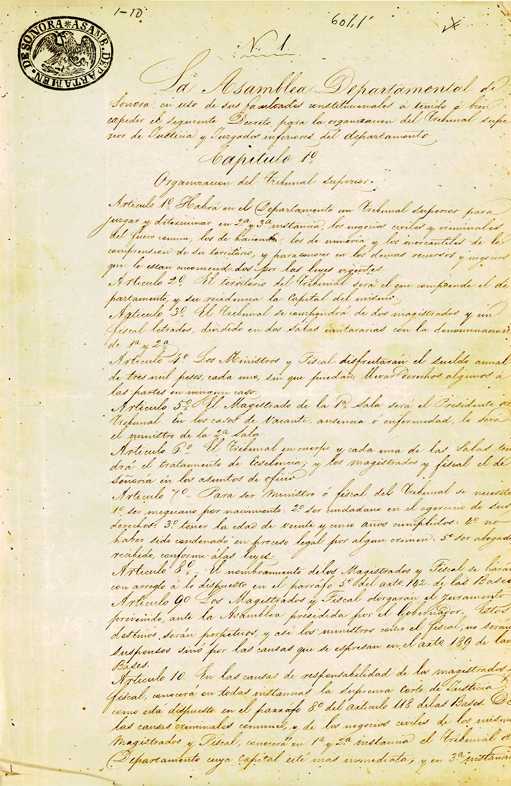 1-10
N. 1.
ASAMB. DEPARTAMEN. DE SONORA
La Asamblea Departamental de
Sonora en uso de sus facultades constitucionales á tenido á bien
expedir el siguiente Decreto, para la organizacion del Tribunal supe-
rior de Justicia y Juzgados inferiores del departamento
Capitulo 1º
Organizacion del Tribunal superior.
Articulo 1º Habrá en el Departamento un Tribunal superior para
juzgar y determinar en 2ª y 3ª instancia, los negocios civiles y criminales
del fuero comun, los de hacienda, los de mineria y los mercantiles de la
comprension de su territorio, y para conocer en los demas recursos y negocios
que le estan encomendados por las leyes vigentes
Articulo 2º El territorio del Tribunal será el que comprende el de-
partamento, y su residencia la Capital del mismo.
Articulo 3º El Tribunal se compondrá de dos magistrados y un
fiscal letrados, dividido en dos salas unitararias con la denominacion
de 1ª y 2ª
Articulo 4º Los Ministros y Fiscal disfrutaran el sueldo anual
de tres mil pesos, cada uno, sin que puedan llevar derechos algunos á
las partes en ningun caso
Articulo 5º El Magistrado de la 1ª Sala será el Presidente del
Tribunal. En los casos de vacante, ausencia ó enfermedad, lo será
el ministro de la 2ª Sala
Articulo 6º El Tribunal en cuerpo y cada una de las Salas ten-
drá el tratamiento de Escelencia, y los magistrados y fiscal el de
Señoria en los asuntos de oficio
Articulo 7º Para ser Ministro ó fiscal del Tribunal se necesita
1º ser megicano por nacimiento: 2º ser ciudadano en el egercicio de sus
derechos: 3º tener la edad de veinte y cinco años cumplidos: 4º no
haber sido condenado en proceso legal por algun crimen. 5º ser abogado
recibido, conforme á las leyes.
Articulo 8º El nombramiento de los Magistrados y Fiscal se hará
con arreglo á lo dispuesto en el parráfo 5º del arto. 192 de las Bases
Articulo 9º Los Magistrados y Fiscal otorgaran el juramento
prevenido, ante la Asamblea presidida por el Gobernador. Estos
destinos, serán perpetuos, y así los ministros como el fiscal, no serán
suspensos sinó por las causas que se espresan en el arto 189 de las
Bases.
Articulo 10. En las causas de responsabilidad de los magistrados y
fiscal, conocerá en todas instancias la suprema Corte de Justicia
como está dispuesto en el parráfo 8º del articulo 118 de las Bases. De
las causas criminales comunes, y de los negocios civiles de los mismos
Magistrados y Fiscal, conocerá en 1ª y 2ª instancia el Tribunal del
Departamento cuya capital esté mas inmediata, y en 3ª instancia